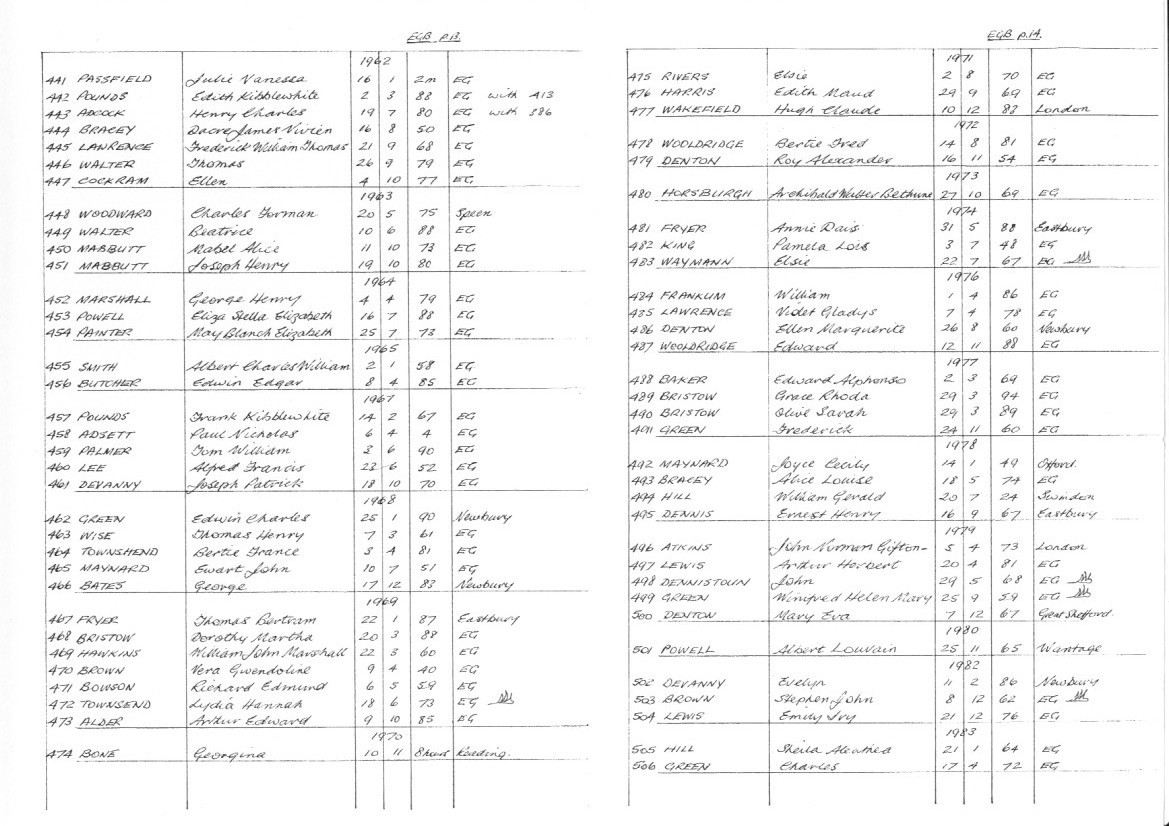 EGB p.13.
1962
441 PASSFIELD Julie Vanessa 16 1 2m EG
442 POUNDS Edith Kibblewhite 2 3 88 EG with 413
443 ADCOCK Henry Charles 19 7 80 EG with 386
444 BRACEY Dacre James Vivien 16 8 50 EG
445 LAWRENCE Frederick William Thomas 21 9 68 EG
446 WALTER Thomas 26 9 79 EG
447 COCKRAM Ellen 4 10 77 EG
1963
448 WOODWARD Charles Forman 20 5 75 Speen
449 WALTER Beatrice 10 6 88 EG
450 MABBUTT Mabel Alice 11 10 73 EG
451 MABBUTT Joseph Henry 19 10 80 EG
1964
452 MARSHALL George Henry 4 4 79 EG
453 POWELL Eliza Stella Elizabeth 16 7 88 EG
454 PAINTER May Blanch Elizabeth 25 7 73 EG
1965
455 SMITH Albert Charles William 2 1 58 EG
456 BUTCHER Edwin Edgar 8 4 85 EG
1967
457 POUNDS Frank Kibblewhite 14 2 67 EG
458 ADSETT Paul Nicholas 6 4 4 EG
459 PALMER Tom William 3 6 90 EG
460 LEE Alfred Francis 22 6 52 EG
461 DEVANNY Joseph Patrick 18 10 70 EG
1968
462 GREEN Edwin Charles 25 1 90 Newbury
463 WISE Thomas Henry 7 3 61 EG
464 TOWNSHEND Bertie France 3 4 81 EG
465 MAYNARD Ewart John 10 7 51 EG
466 BATES George 17 12 83 Newbury
1969
467 FRYER Thomas Bertram 22 1 87 Eastbury
468 BRISTOW Dorothy Martha 20 3 88 EG
469 HAWKINS William John Marshall 22 3 60 EG
470 BROWN Vera Gwendoline 9 4 40 EG
471 BOWSON Richard Edmund 6 5 59 EG
472 TOWNSEND Lydia Hannah 18 6 73 EG
473 ALDER Arthur Edward 9 10 85 EG
1970
474 BONE Georgina 10 11 8 hours Reading.
EGB p.14.
1971
475 RIVERS Elsie 2 8 70 EG
476 HARRIS Edith Maud 29 9 69 EG
477 WAKEFIELD Hugh Claude 10 12 83 London
1972
478 WOOLDRIDGE Bertie Fred 14 8 81 EG
479 DENTON Roy Alexander 16 11 54 EG
1973
480 HORSBURGH Archibald Walter Bethune 27 10 69 EG
1974
481 FRYER Annie Dais 31 5 88 Eastbury
482 KING Pamela Lois 3 7 48 EG
483 WAYMANN Elsie 22 7 67 EG
1976
484 FRANKUM William 1 4 86 EG
485 LAWRENCE Violet Gladys 7 4 78 EG
486 DENTON Ellen Marguerite 26 8 60 Newbury
487 WOOLDRIDGE Edward 12 11 88 EG
1977
488 BAKER Edward Alphonso 2 3 69 EG
489 BRISTOW Grace Rhoda 29 3 94 EG
490 BRISTOW Olive Sarah 29 3 89 EG
491 GREEN Frederick 24 11 60 EG
1978
492 MAYNARD Joyce Cecily 14 1 49 Offord.
493 BRACEY Alice Louise 18 5 74 EG
494 HILL William Gerald 20 7 24 Swindon
495 DENNIS Ernest Henry 16 9 67 Eastbury
1979
496 ATKINS John Norman Gifton- 5 4 73 London
497 LEWIS Arthur Herbert 20 4 81 EG
498 DENNISTOUN John 29 5 68 EG
499 GREEN Winifred Helen Mary 25 9 59 EG
500 DENTON Mary Eva 7 12 67 Great Shefford.
1980
501 POWELL Albert Louvain 25 11 65 Wantage
1982
502 DEVANNY Evelyn 11 2 86 Newbury
503 BROWN Stephen John 8 12 62 EG
504 LEWIS Emily Ivy 21 12 76 EG
1983
505 HILL Sheila Alethea 21 1 64 EG
506 GREEN Charles 17 4 72 EG